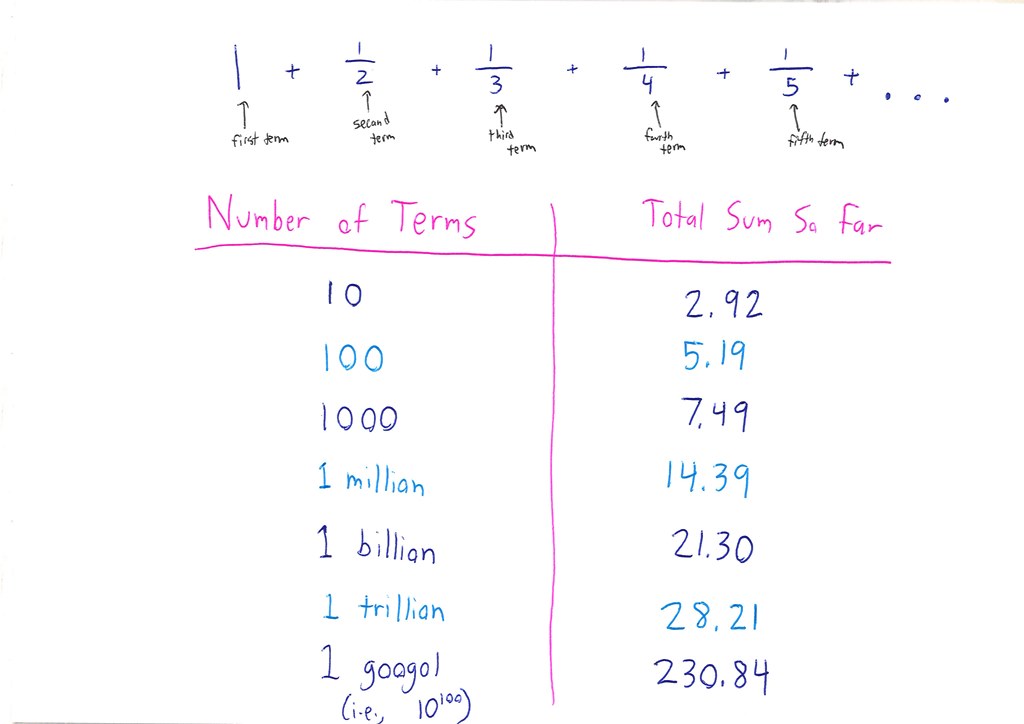 1 + 1/2 + 1/3 + 1/4 + 1/5 + ...
first term second term third term fourth term fifth term
Number of Terms Total Sum So Far
10 2.92
100 5.19
1000 7.49
1 million 14.39
1 billion 21.30
1 trillion 28.21
1 googol 230.84
(i.e., 10¹⁰⁰)